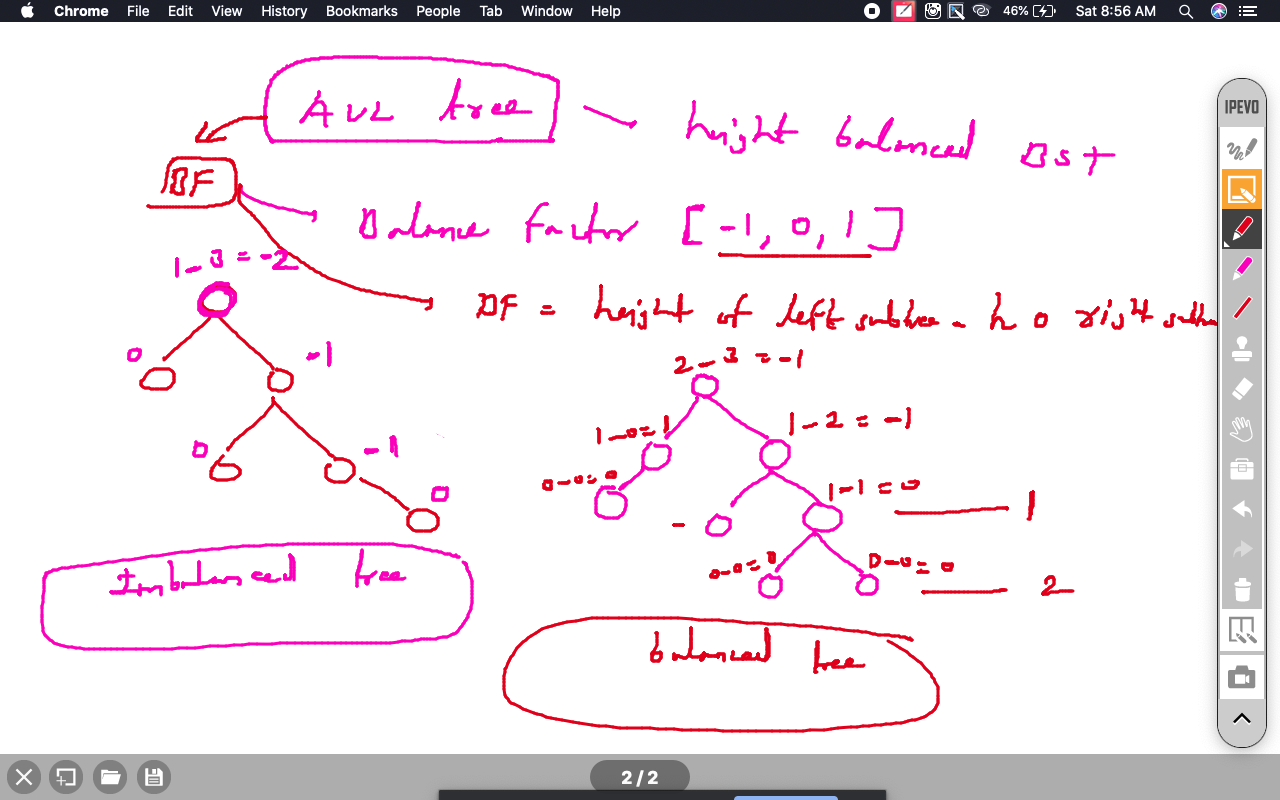 Chrome File Edit View History Bookmarks People Tab Window Help 46% Sat 8:56 AM
AVL tree
height balanced BST
BF
Balance Factor [-1, 0, 1]
BF = height of left subtree - h o right subtree
IPEVO
1 - 3 = -2
0
-1
0
-1
0
Imbalanced tree
2 - 3 = -1
1 - 0 = 1
1 - 2 = -1
0 - 0 = 0
1 - 1 = 0
1
-
0 - 0 = 0
0 - 0 = 0
2
balanced tree
2 / 2